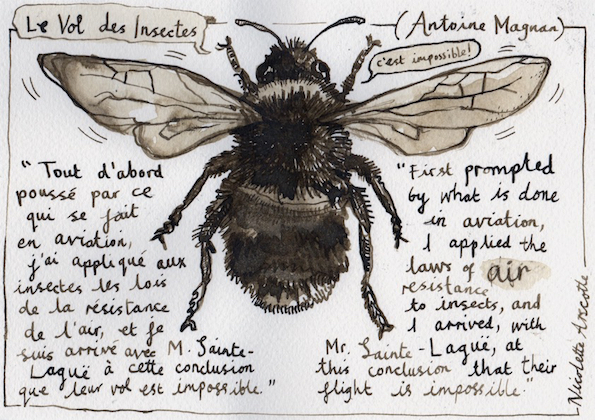 Le Vol des Insectes
(Antoine Magnan)
c'est impossible!
"Tout d'abord
poussé par ce
qui se fait
en aviation,
j'ai appliqué aux
insectes les lois
de la résistance
de l'air, et je
suis arrivé avec M. Sainte-
Laguë à cette conclusion
que leur vol est impossible."
"First prompted
by what is done
in aviation,
I applied the
laws of air
resistance
to insects, and
I arrived, with
Mr. Sainte-Laguë, at
this conclusion that their
flight is impossible."